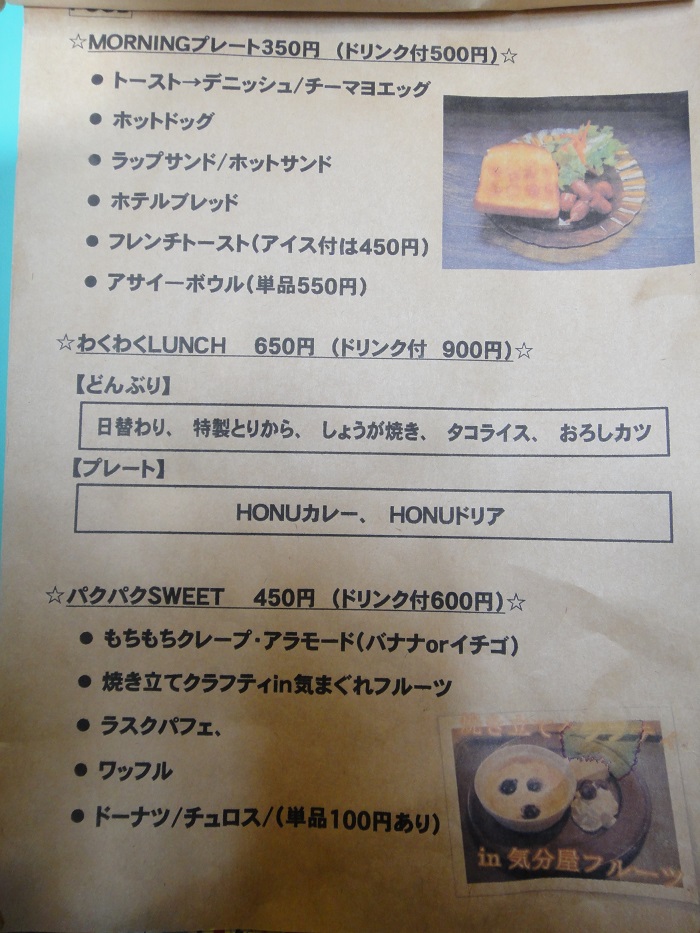 ☆MORNINGプレート350円 (ドリンク付500円)☆
● トースト→デニッシュ/チーマヨエッグ
● ホットドッグ
● ラップサンド/ホットサンド
● ホテルブレッド
● フレンチトースト(アイス付は450円)
● アサイーボウル(単品550円)
☆わくわくLUNCH 650円 (ドリンク付 900円)☆
【どんぶり】
日替わり、 特製とりから、 しょうが焼き、 タコライス、 おろしカツ
【プレート】
HONUカレー、 HONUドリア
☆パクパクSWEET 450円 (ドリンク付600円)☆
● もちもちクレープ・アラモード(バナナorイチゴ)
● 焼き立てクラフティin気まぐれフルーツ
● ラスクパフェ、
● ワッフル
● ドーナツ/チュロス/(単品100円あり)
焼き立て
in 気分屋フルーツ